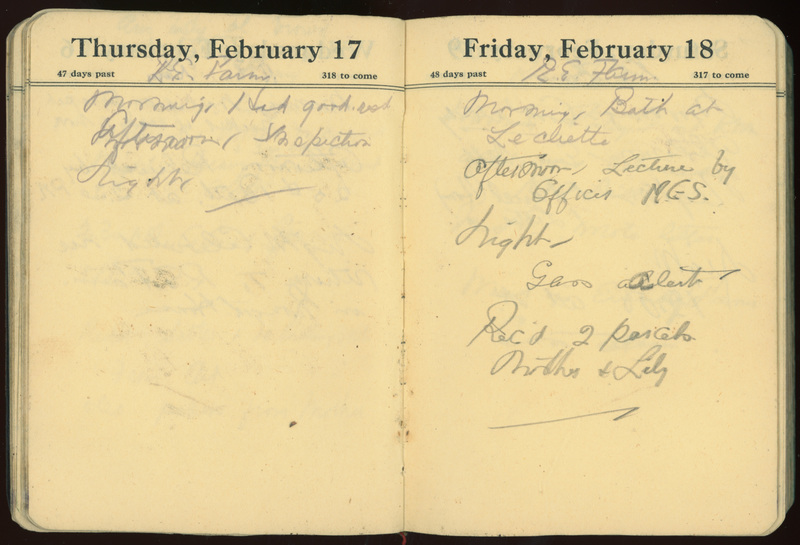 Thursday, February 17
47 days past 318 to come
Farm
Morning, Had good rest
Afternoon, Inspection
Night,
Friday, February 18
48 days past 317 to come
Farm
Morning, Bath at
Afternoon, Lecture by
Officer
Night
Gass alert
Rec'd 2 parcels
Mother & Lily